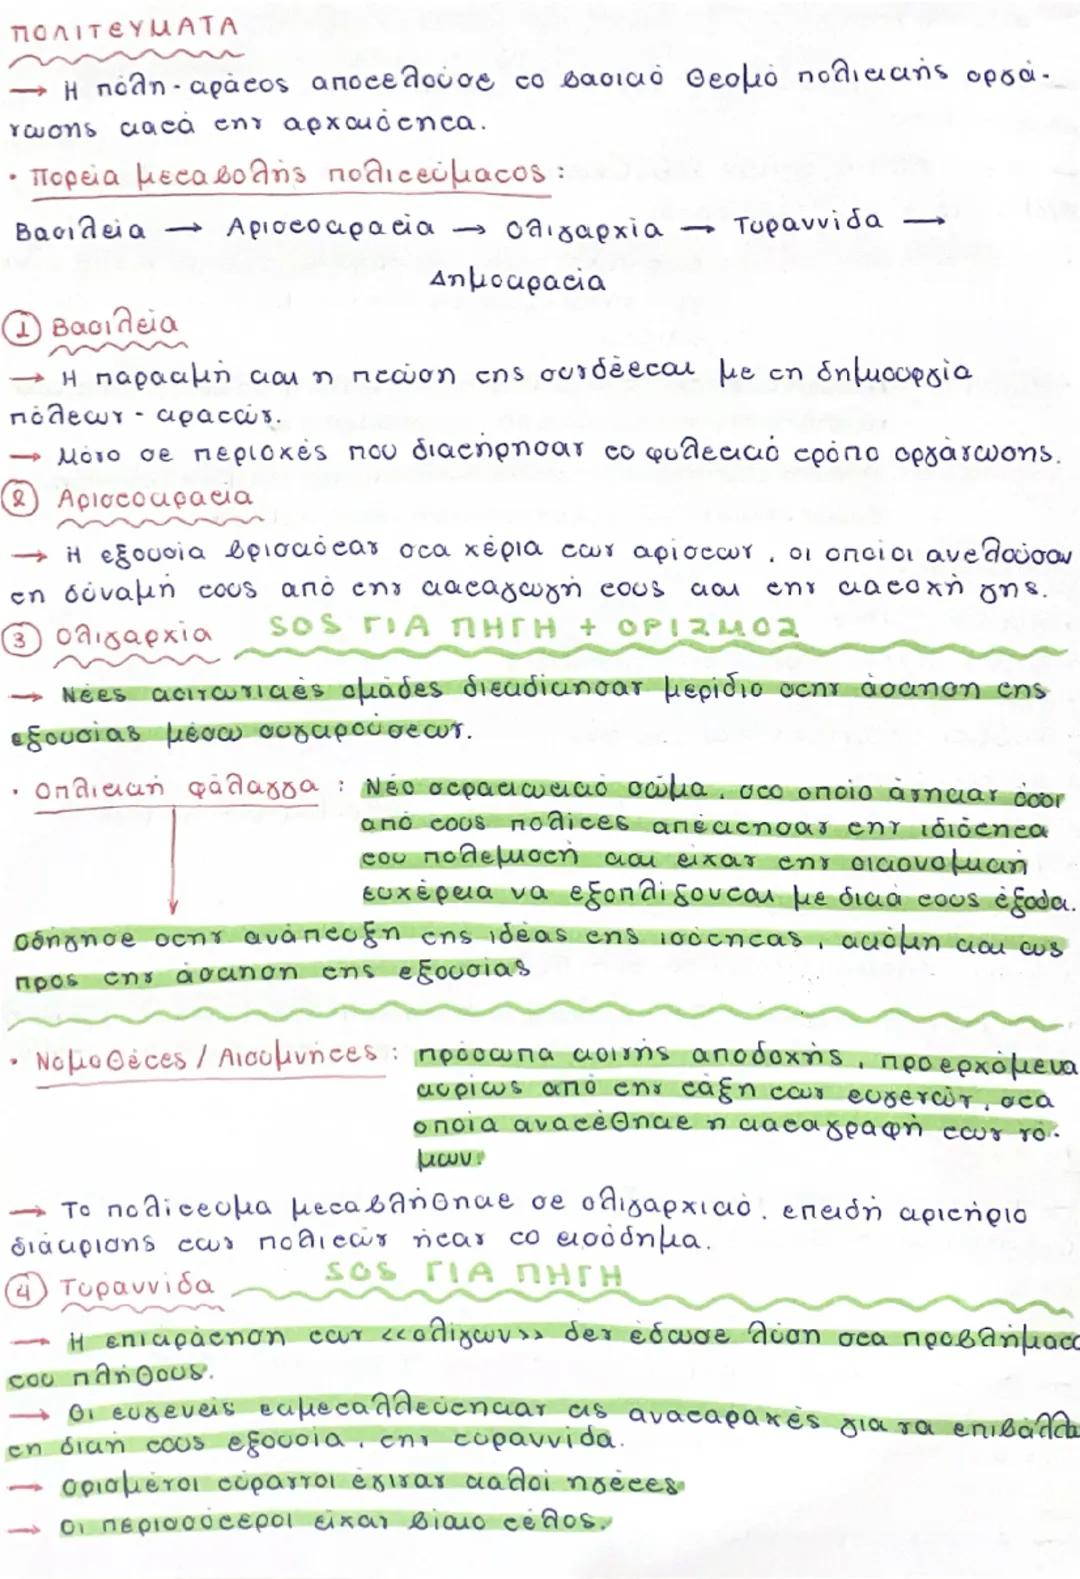 ΠΟΛΙΤΕΥΜΑΤΑ
→ Η πόλη-κράτος αποτελούσε το βασικό θεσμό πολιτικής οργά-
νωσης κατά την αρχαιότητα.
• Πορεία μεταβολής πολιτεύματος:
Βασιλεία → Αριστοκρατία → Ολιγαρχία → Τυραννίδα →
Δημοκρατία
① Βασιλεία
→ Η παρακμή και η πτώση της συνδέεται με τη δημιουργία
πόλεων-κρατών.
→ Μόνο σε περιοχές που διατήρησαν το φυλετικό τρόπο οργάνωσης.
② Αριστοκρατία
→ Η εξουσία βρισκόταν στα χέρια των αρίστων, οι οποίοι αντλούσαν
τη δύναμή τους από την καταγωγή τους και την κατοχή γης.
③ Ολιγαρχία SOS ΓΙΑ ΠΗΓΗ + ΟΡΙΣΜΟΣ
→ Νέες κοινωνικές ομάδες διεκδίκησαν μερίδιο στην άσκηση της
εξουσίας μέσω συγκρούσεων.
• Οπλιτική φάλαγγα: Νέο στρατιωτικό σώμα, στο οποίο άνηκαν όσοι
από τους πολίτες απέκτησαν την ιδιότητα
του πολεμιστή και είχαν την οικονομική
ευχέρεια να εξοπλίζονται με δικά τους έξοδα.
Οδήγησε στην ανάπτυξη της ιδέας της ισότητας, ακόμη και ως
προς την άσκηση της εξουσίας
• Νομοθέτες / Αισυμνήτες: πρόσωπα κοινής αποδοχής, προερχόμενα
κυρίως από την τάξη των ευγενών, στα
οποία ανατέθηκε η καταγραφή των νό-
μων.
→ Το πολίτευμα μεταβλήθηκε σε ολιγαρχικό, επειδή κριτήριο
διάκρισης των πολιτών ήταν το εισόδημα.
④ Τυραννίδα SOS ΓΙΑ ΠΗΓΗ
→ Η επικράτηση των <<ολίγων>> δεν έδωσε λύση στα προβλήματα
του πλήθους.
→ Οι ευγενείς εκμεταλλεύτηκαν τις αναταραχές για να επιβάλλ
τη δική τους εξουσία, την τυραννίδα.
→ Ορισμένοι τύραννοι έγιναν καλοί ηγέτες
→ Οι περισσότεροι είχαν βίαιο τέλος.